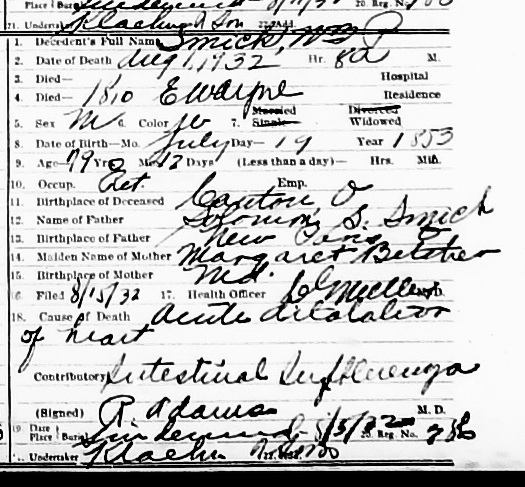 21. Undertaker Klaehn & Son
1. Decedent's Full Name Smick, Wm P
2. Date of Death Aug 1, 1932 Hr. 8a M.
3. Died— Hospital
4. Died— 1810 E Wayne Residence
Married Divorced
5. Sex M 6. Color W 7. Single Widowed
8. Date of Birth—Mo. July Day— 19 Year 1853
9. Age 79 Yrs. 0 Mo. 12 Days (Less than a day)— Hrs. Min.
10. Occup. Ret. Emp.
11. Birthplace of Deceased Canton, O
12. Name of Father Solomon S. Smick
13. Birthplace of Father New Paris O
14. Maiden Name of Mother Margaret Betcher
15. Birthplace of Mother Md.
16. Filed 8/15/32 17. Health Officer M.D.
18. Cause of Death Acute dilatation
of heart
Contributory Intestinal Influenza
(Signed) R. Adams M. D.
19. Date Place Burial Lindenwood 8/3/32 20. Reg. No.
Undertaker Klaehn